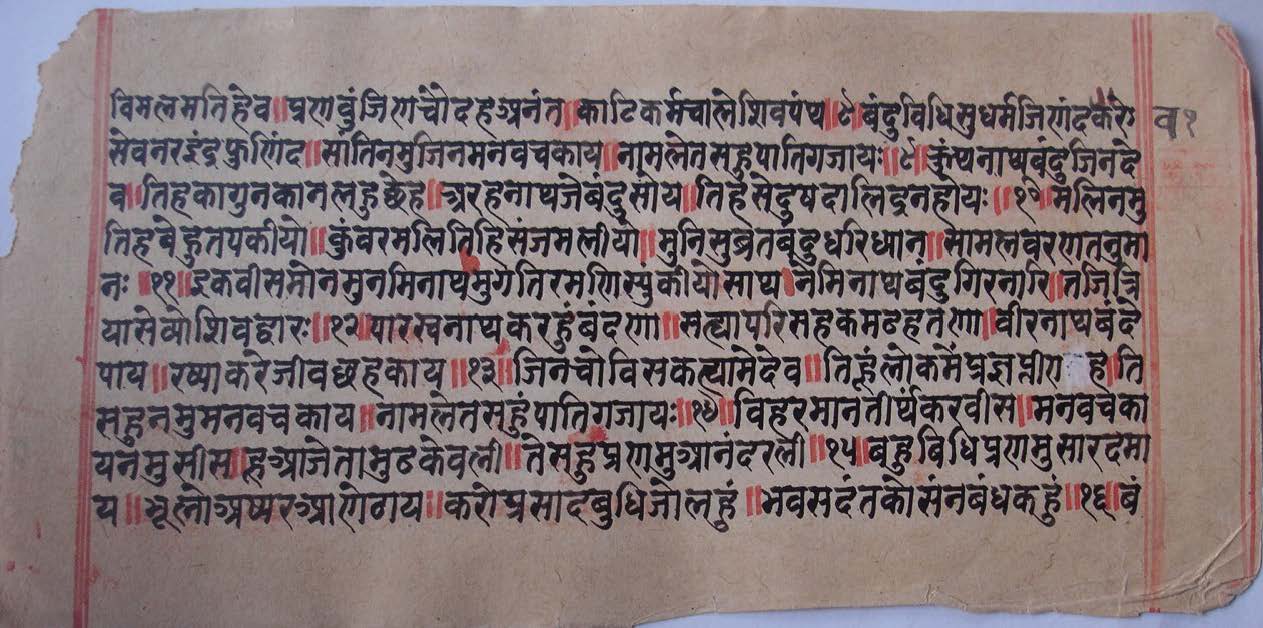 विमलमतिहेव॥प्रणवुंजिणचौदहअनंत॥काटिकर्मचाल्लेशिवपंथ॥८बंदुविधिसुधर्मजिणंदकरेो
सेवनरइंद्रफुणिंद॥सांतिनमुजिनमनवचकाय॥नामलेतसहुपातिगजायः॥९॥कुंथनाथबंदुजिनदे
व॥तिहकागुनकानलहुछेह॥अरहनाथजेबंदुसोय॥तिहसेदुषदालिद्रनहोयः॥१०॥मलिनमु
तिहबेहुतपकीयो॥कुंवरमलितिहिसंजमलीयो॥मुनिसुब्रतबंदुधरिध्यान॥सामलवरणतनुमा
नः॥११॥इकवीसमोनमुनमिनाथमुगतिरमणिस्युंकीयोसाथ।नेमिनाथबंदुगिरनारि॥तजित्रि
यासेव्योशिवद्वारः॥१२पारस्वनाथकरहुंबंदणा॥सत्द्यापरिसहकमठहतणा॥वीरनाथबंदे
पाय॥रष्याकरेजीवछहकाय॥१३॥जिनचोविसकत्द्यामेदेव॥तिहूंलोकमेंप्रज्ञप्लीण हे॥ति
सहुनमुमनवचकाय॥नामलेतसहुंपातिगजायः॥१४॥विहरमानतीर्थंकरवीस॥मनवचका
यनमुसीस॥हूआजेतामुढकेवली॥तेसहुप्रणमुआनंदरली॥१५॥बहुविधिप्रणमुसारदमा
य॥भूलोअष्यरआणेठाय॥करोप्रसादबुधिजोलहुं॥भवसदंतकोसंनबंधकहुं॥१६॥बं
व१